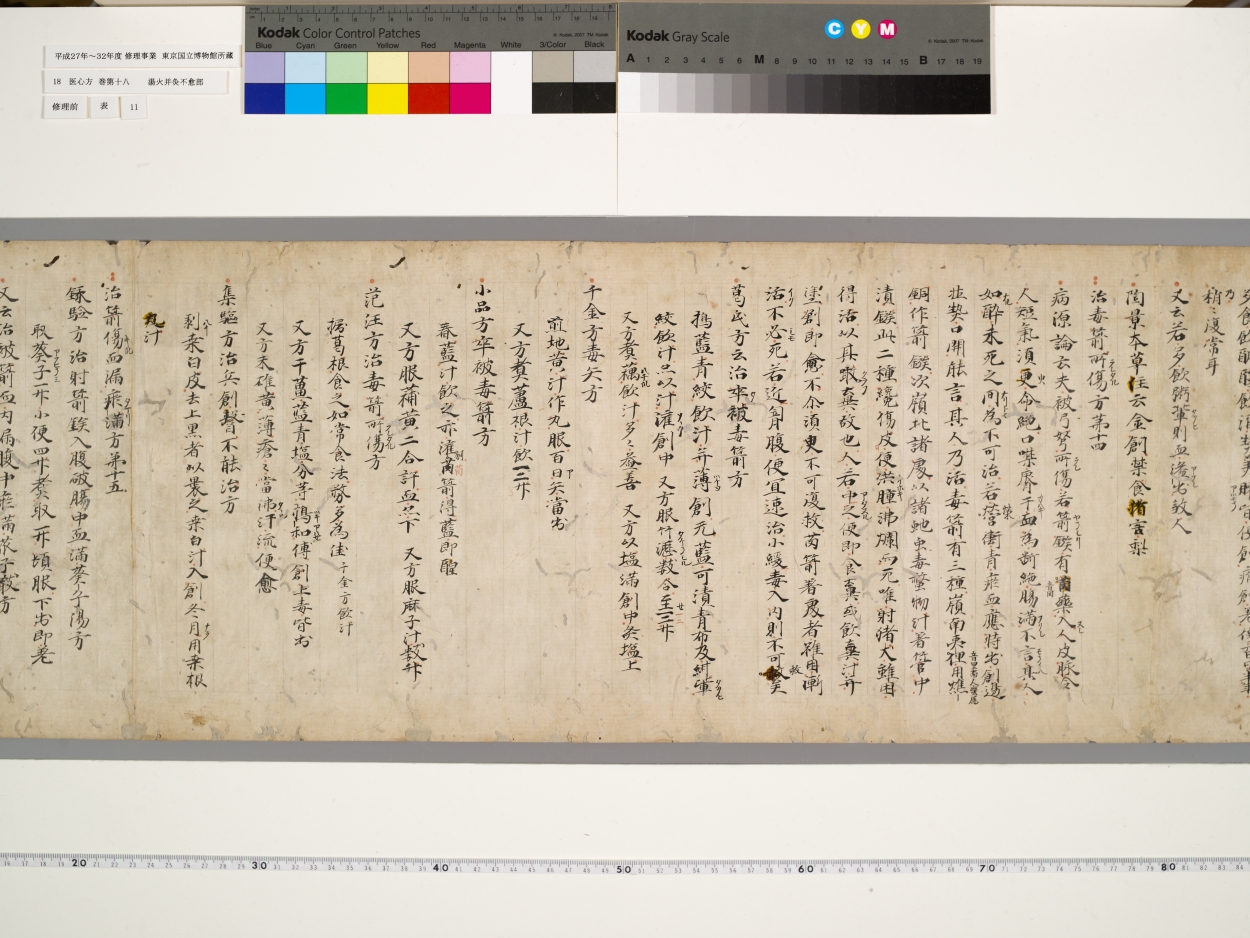 平成27年～32年度 修理事業 東京国立博物館所蔵
18 医心方 巻第十八 湯火并灸不愈部
修理前 表 11
Kodak Color Control Patches
© Kodak, 2007 TM: Kodak
Blue Cyan Green Yellow Red Magenta White 3/Color Black
Kodak Gray Scale
C Y M
© Kodak, 2007 TM: Kodak
A 1 2 3 4 5 6 M 8 9 10 11 12 13 14 15 B 17 18 19
稍々復常耳
又云若多飲粥輩則血溢出敎人
陶景本草注云金創禁食猪害梨
治毒箭所傷方第十四
病源論云夫被弓弩所傷若箭鏃有藥入人皮脉令
人短氣須更命絶口噤脣干血為断絶腸滿不言其人
如酔未死之間為不可治若營衝青瘀血應時出創邊
並契口開能言其人乃活毒箭有三種嶺南夷俚用燋
銅作箭鏃次嶺北諸處以諸虵虫毒螫物汁著管中
漬鏃此二種纔傷皮便洪腫沸爛而死唯射猪犬雖困
得活以其噉糞故也人若中之便即食糞或飲糞汁并
塗創即愈不尒須更不可復救茵箭著處者雖困漸
活不必死若近胷腹便宜速治小緩毒入内則不可救矣
葛氏方云治卒被毒箭方
擣藍青絞飲汁并薄創无藍可漬青布及紺輩
絞飲汁亦以汁灌創中 又方服竹瀝數合至二三升
又方煮藕飲汁多々益善 又方以塩滿創中灸塩上
千金方毒矢方
煎地黄汁作丸服百日矢當出
又方煮蘆根汁飲一二升
小品方卒被毒箭方
舂藍汁飲之亦灌創茵箭得藍即醒
又方服蒲黄二合許血亦下 又方服麻子汁數升
范汪方治毒箭所傷方
擣葛根食之如常食法務多為佳 千金方飲汁
又方干薑藍青塩分等搗和傅創上毒皆出
又方末雄黄薄瘡々當沸汗流便愈
集驗方治兵創瞽不能治方
剥桒白皮去上黒者以裹之桒白汁入創冬月用桒根
取汁
治箭傷血漏瘀滿方第十五
録驗方治射箭鏃入腹破腸中血滿葵子湯方
取葵子一升小便四升煮取一升頓服下出即差
又云治被箭血内漏腹中瘀滿葵子散方
20 30 40 50 60 70 80